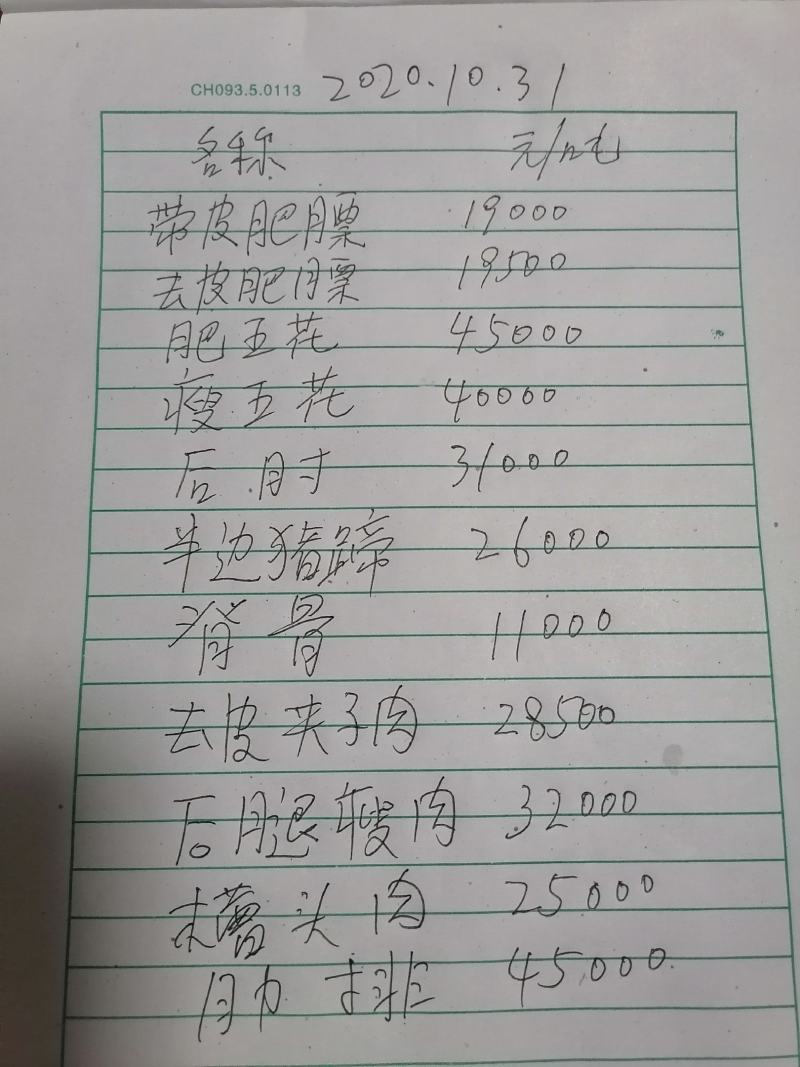 CH093.5.0113 2020.10.31
名称 元/吨
带皮肥膘 19000
去皮肥膘 19500
肥五花 45000
瘦五花 40000
后肘 31000
半边猪蹄 26000
脊骨 11000
去皮夹子肉 28500
后腿瘦肉 32000
头肉 25000
肋排 45000